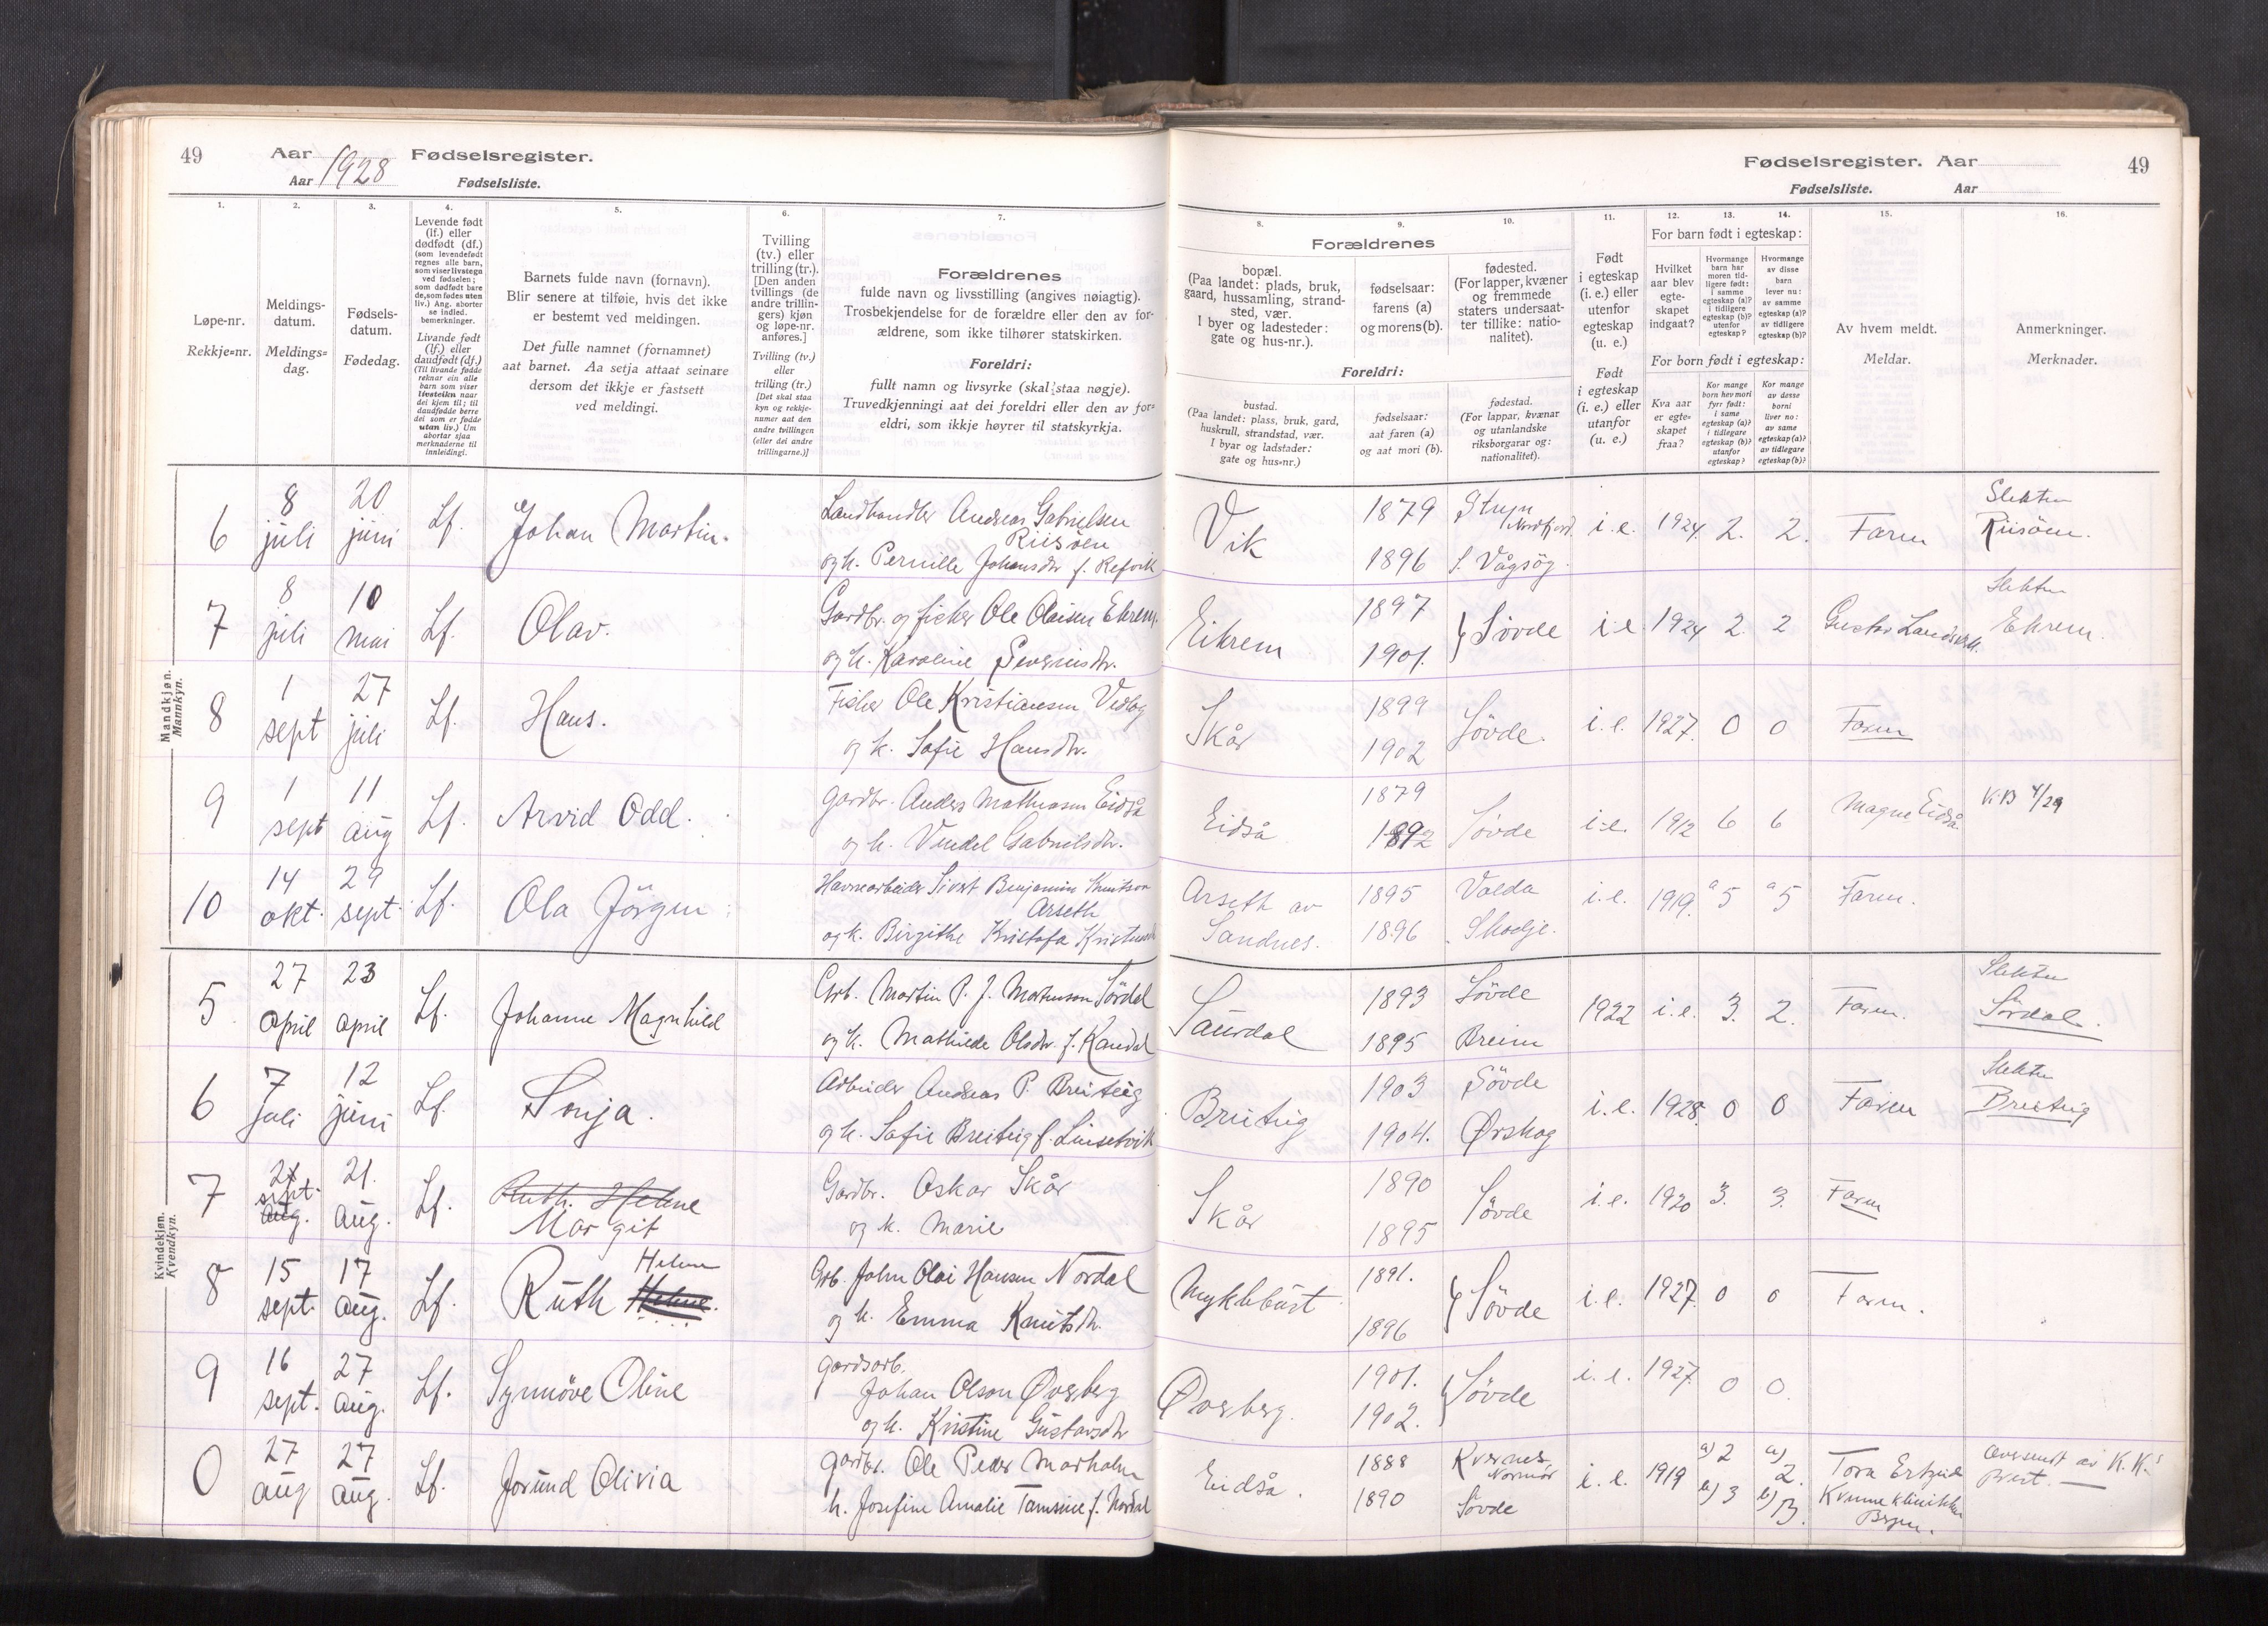 49 Aar 1928 Fødselsregister.
Aar Fødselsliste.
Fødselsregister. Aar 49
Fødselsliste. Aar
1. 2. 3. 4. 5. 6. 7.
Løpe-nr.
Rekkje=nr.
Meldings-
datum.
Meldings=
dag.
Fødsels-
datum.
Fødedag.
Levende født
(lf.) eller
dødfødt (df.)
(som levendefødt
regnes alle barn,
som viser livstegn
ved fødselen;
som dødfødt bare
de, som fødes uten
liv.) Ang. aborter
se indled.
bemerkninger.
Livande født
(lf.) eller
daudfødt (df.)
(Til livande fødde
reknar ein alle
born som viser
livsteikn naar
dei kjem til; til
daudfødde berre
dei som er fødde
utan liv.) Um
abortar sjaa
merknaderne til
innleidingi.
Barnets fulde navn (fornavn).
Blir senere at tilføie, hvis det ikke
er bestemt ved meldingen.
Det fulle namnet (fornamnet)
aat barnet. Aa setja attaat seinare
dersom det ikkje er fastsett
ved meldingi.
Tvilling
(tv.) eller
trilling (tr.).
[Den anden
tvillings (de
andre trillin-
gers) kjøn
og løpe-nr.
anføres.]
Tvilling (tv.)
eller
trilling (tr.)
[Det skal staa
kyn og rekkje-
numer aat den
andre tvillingen
(eller dei andre
trillingarne.)]
Forældrenes
fulde navn og livsstilling (angives nøiagtig).
Trosbekjendelse for de forældre eller den av for-
ældrene, som ikke tilhører statskirken.
Foreldri:
fullt namn og livsyrke (skal staa nøgje).
Truvedkjenningi aat dei foreldri eller den av for=
eldri, som ikkje høyrer til statskyrkja.
8. 9. 10. 11. 12. 13. 14. 15. 16.
Forældrenes
bopæl.
(Paa landet: plads, bruk,
gaard, hussamling, strand-
sted, vær.
I byer og ladesteder:
gate og hus-nr.).
fødselsaar:
farens (a)
og morens (b).
fødested.
(For lapper, kvæner
og fremmede
staters undersaat-
ter tillike: natio-
nalitet).
Foreldri:
bustad.
(Paa landet: plass, bruk, gard,
huskrull, strandstad, vær.
I byar og ladstader:
gate og hus=nr.)
fødselsaar:
aat faren (a)
og aat mori (b).
fødestad.
(For lappar, kvænar
og utanlandske
riksborgarar og:
nationalitet).
Født
i egteskap
(i. e.) eller
utenfor
egteskap
(u. e.)
Født
i egteskap
(i. e.) eller
utanfor
(u. e.)
For barn født i egteskap:
Hvilket
aar blev
egte-
skapet
indgaat?
Hvormange
barn har
moren tid-
ligere født:
i samme
egteskap (a)?
i tidligere
egteskap (b)?
utenfor
egteskap?
Hvormange
av disse
barn
lever nu:
av samme
egteskap (a)?
av tidligere
egteskap (b)?
For born født i egteskap:
Kva aar
er egte=
skapet
fraa?
Kor mange
born hev mori
fyrr født:
i same
egteskap (a)?
i tidlegare
egteskap (b)?
utanfor
egteskap?
Kor mange
av desse
borni
liver no:
av same
egteskap (a)?
av tidlegare
egteskap (b)?
Av hvem meldt.
Meldar.
Anmerkninger.
Merknader.
Mandkjøn.
Mannkyn.
6 8 juli 20 juni Lf. Johan Martin. Landhandler Andreas Gabrielsen
Riisøen
og h. Pernille Johansdtr f. Refvik
Vik 1879 Stryn Nordfjord. i. e. 1924. 2. 2. Faren Slektsn Riisöen.
1896 S. Vågsøy.
7 8 juli 10 mai Lf. Olav. Gardbr. og fisker Ole Olaisen Ekrem.
og h. Karoline Severinsdtr.
Eikrem 1897 1901. Søvde i. e. 1924 2. 2 Gustav Landsverk. Slektsn Ekrem.
8 1 sept 27 juli Lf. Hans. Fisker Ole Kristiansen Vedlog
og h. Sofie Hansdtr.
Skår 1899 1902 Søvde. i. e. 1927. 0 0 Faren
9 1 sept 11 aug Lf. Arvid Odd. Gardbr. Anders Mathiasen Eidså
og h. Vendel Gabrielsdtr.
Eidså 1879 1892 Søvde i. e. 1912 6 6 Magne Eidså K.B 4/29
10 14 okt. 29 sept. Lf. Ola Jörgen Havnearbeider Sivert Benjamin Knutson
Arseth
og h. Birgithe Kristofa
Arseth av
Sandnes.
1895 Volda i. e. 1919. a 5 a 5 Faren.
1896 Skodje.
Kvindekjøn.
Kvendkyn.
5 27 april 23 april Lf. Johanne Magnhild Grb. Martin P. J. Martinson Sördal
og h. Mathilde Olsdtr. f. Kandal
Saurdal 1893 Søvde 1922 i. e. 3. 2. Faren. Slektsn Sördal.
1895 Breim
6 7 Juli 12 juni Lf. Sonja. Arbeider Andreas P. Breiteig
og h. Sofie Breiteig f. Linsetvik
Breiteig 1903 Søvde i. e. 1928. 0 0 Faren Slektsn Breiteig
1904. Ørskog
7 21 sept. aug. 21. aug. Lf. Ruth. Helene
Margit
Gardbr. Oskar Skår
og h. Marie
Skår 1890 1895 Søvde i. e. 1920 3. 3. Faren
8 15 sept. 17 aug. Lf. Ruth Helene. Helene Grb. John Olai Hansen Nordal
og h. Emma Knutsdtr.
Myklebust 1891. 1896 Søvde i. e. 1927. 0 0 Faren.
9 16 sept. 27 aug. Lf. Synnöve Oline gardsarb.
Johan Olson Øverberg
og h. Kristine Gustavsdtr
Øverberg. 1901. 1902. Søvde i. e. 1927. 0 0.
0 27 aug 27 aug. Lf. Jorund Olivia gardbr. Ole Peder Marholm
h. Josefine Amalie Tamsine f. Nordal
Eidså. 1888 Kvernes Normör i. e. 1919 a) 2 b) 3 a) 2. b) 3. Tora
Kvinneklinikken
Bergen.
Oversendt av K.K.
1890 Søvde